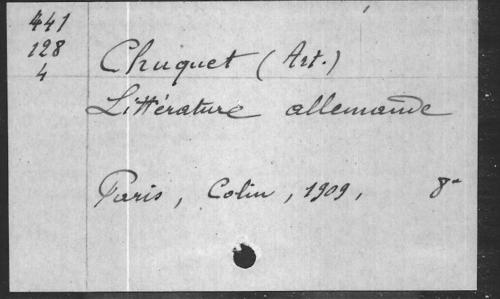 441
128
4
Chuquet (Art.)
Littérature allemande
Paris, Colin, 1909, 8°